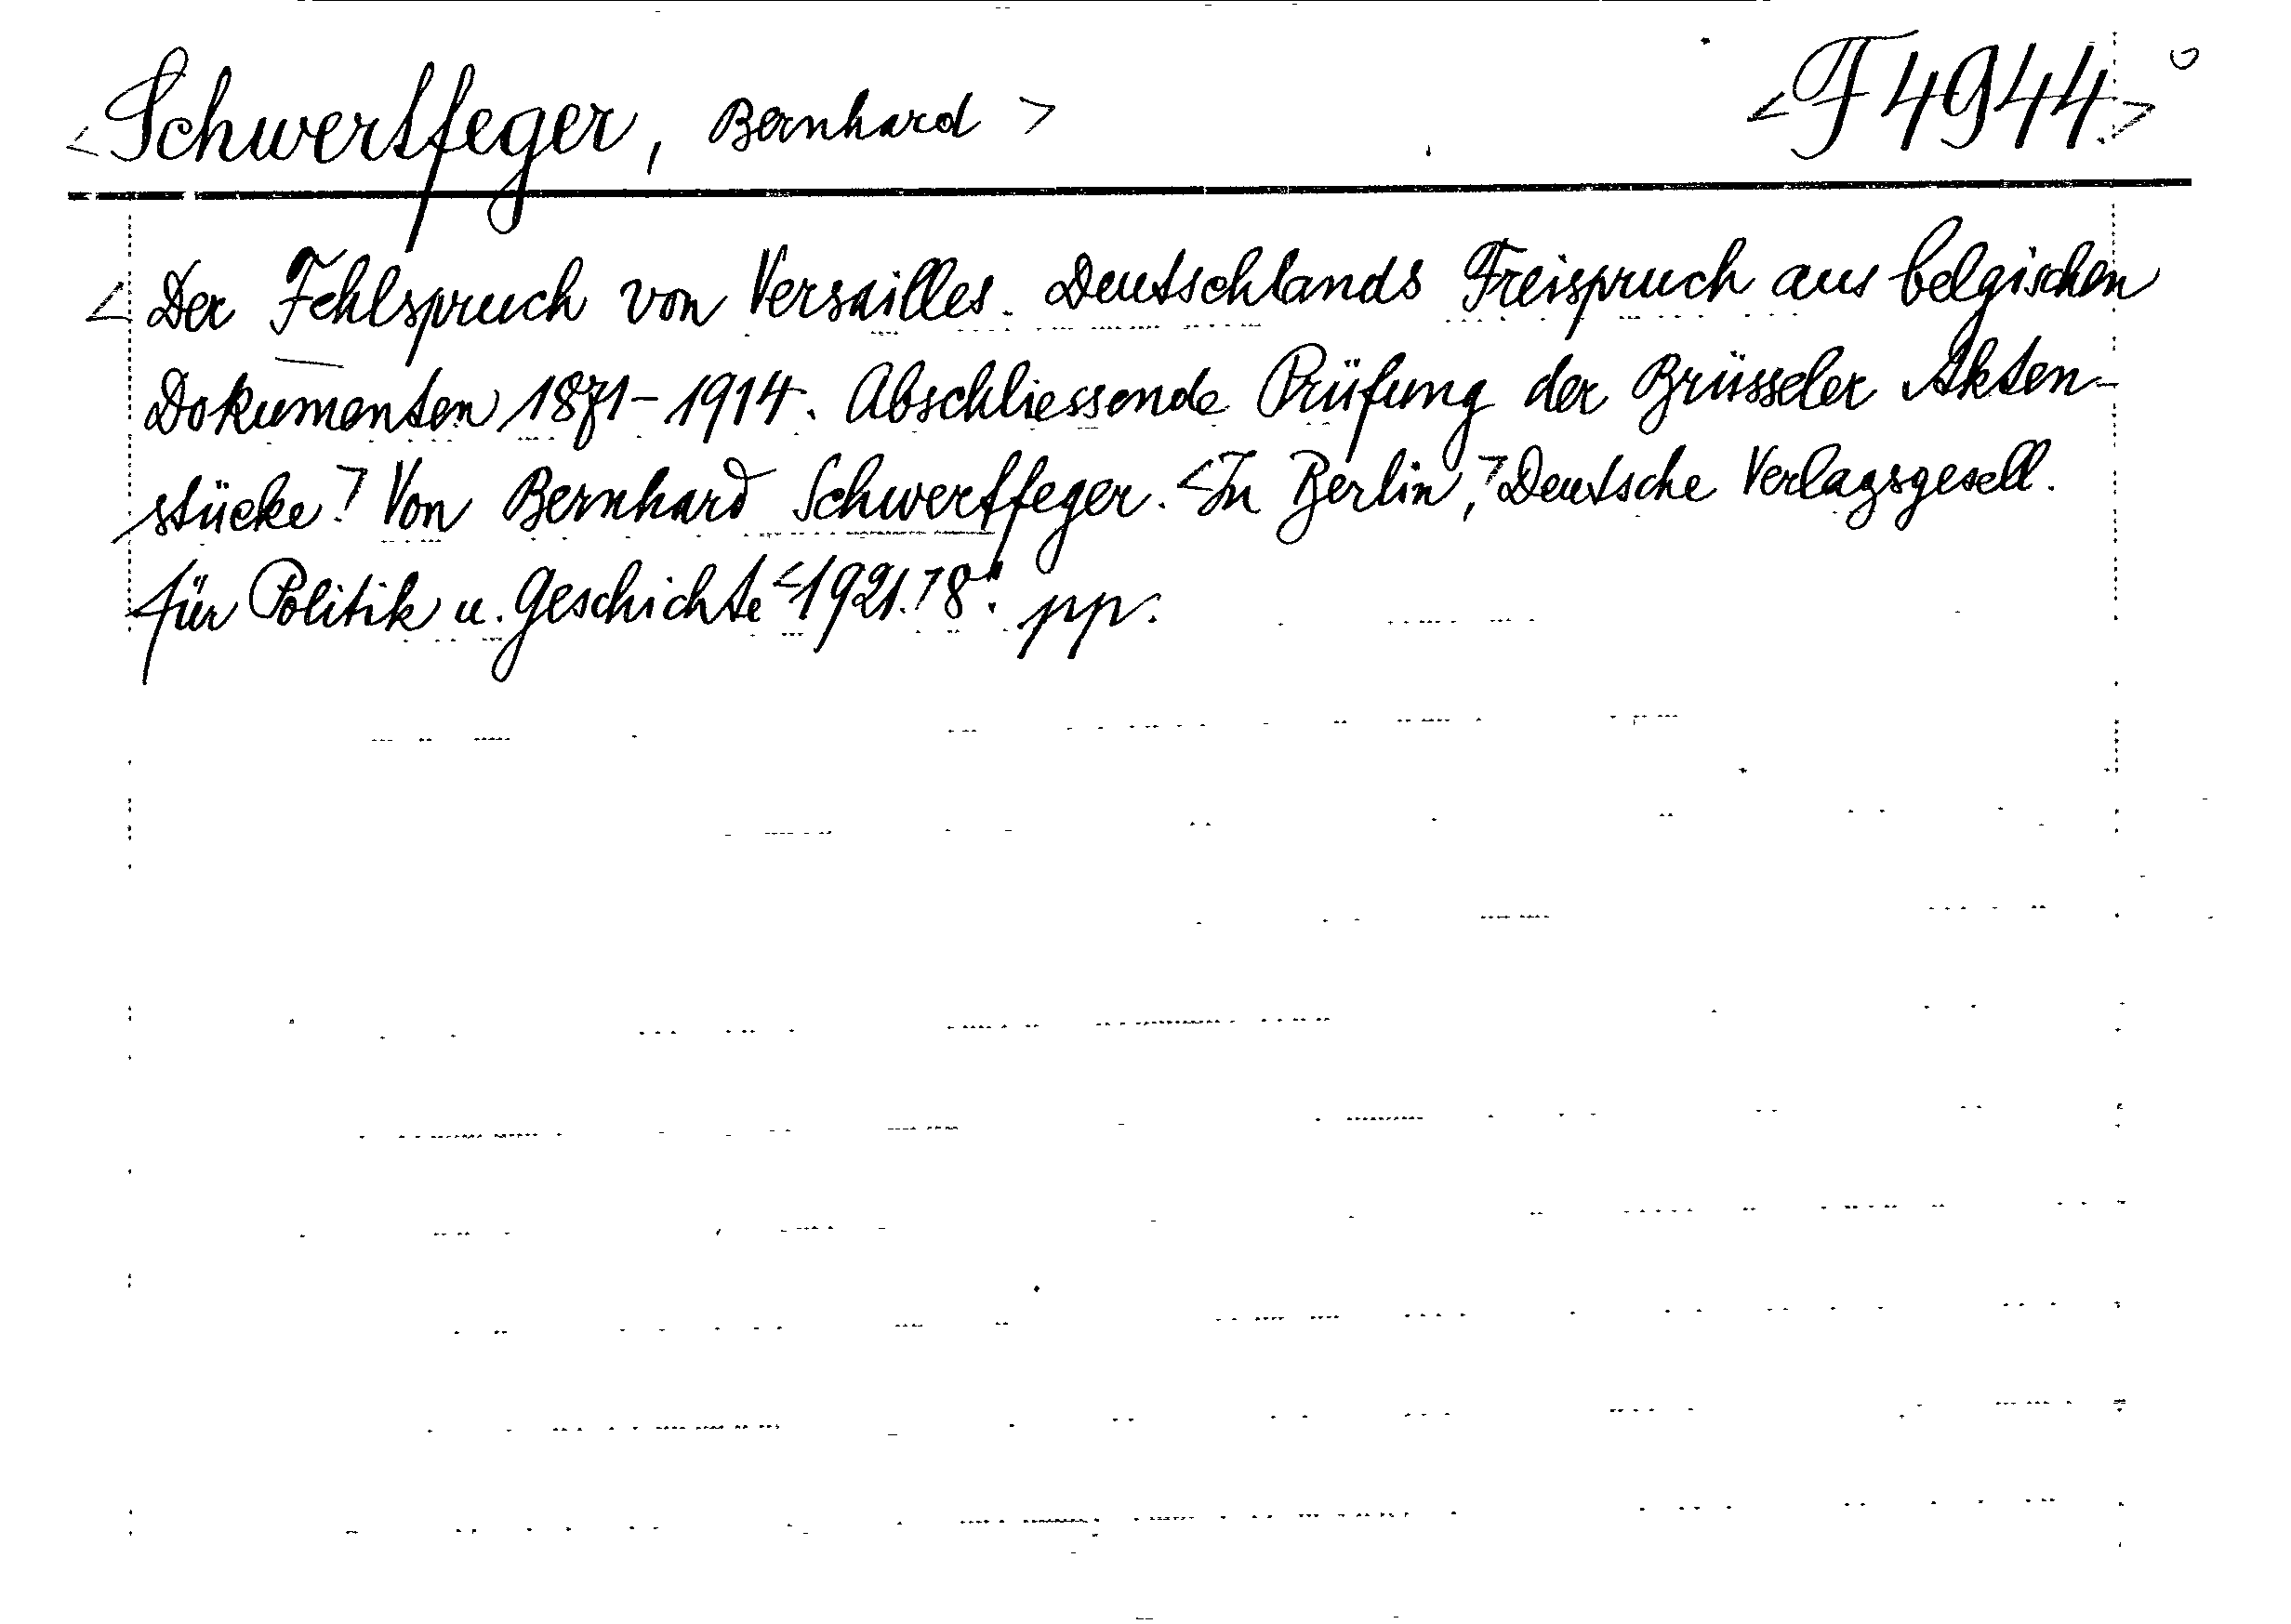 <Schwertfeger, Bernhard> <F 4944.>
<Der Fehlspruch von Versailles. Deutschlands Freispruch aus belgischen
Dokumenten 1871-1914. Abschliessende Prüfung der Brüsseler Akten-
stücke.> Von Bernhard Schwertfeger. <In Berlin,> Deutsche Verlagsgesell.
für Politik u. Geschichte <1921.> 8°. pp.